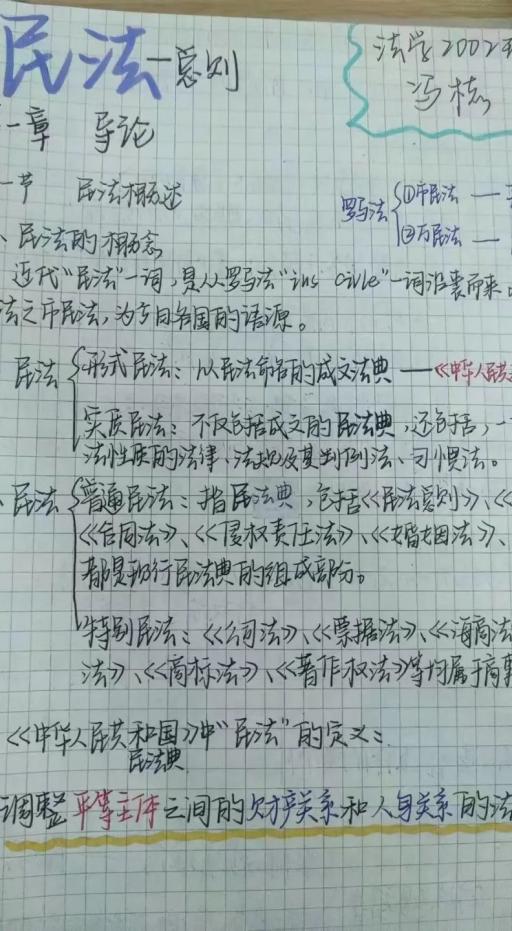 民法—总则
法学2002
冯
一章 导论
一节 民法概述
罗马法 ①市民法 —
②万民法 —
、民法的概念
近代“民法”一词,是从罗马法“ius civile”一词沿袭而来。
法之市民法,为方目各国的语源。
民法 形式民法:以民法命名的成文法典 ——《中华人民共
实质民法:不仅包括成文的民法典,还包括,一
法性质的法律、法规及其判例法、习惯法。
、民法 普通民法:指民法典,包括《民法总则》、《
《合同法》、《侵权责任法》、《婚姻法》、
都是现行民法典的组成部分。
特别民法:《公司法》、《票据法》、《海商法
法》、《商标法》、《著作权法》等均属于商事
《中华人民共和国》中“民法”的定义:
民法典
调整平等主体之间的财产关系和人身关系的法